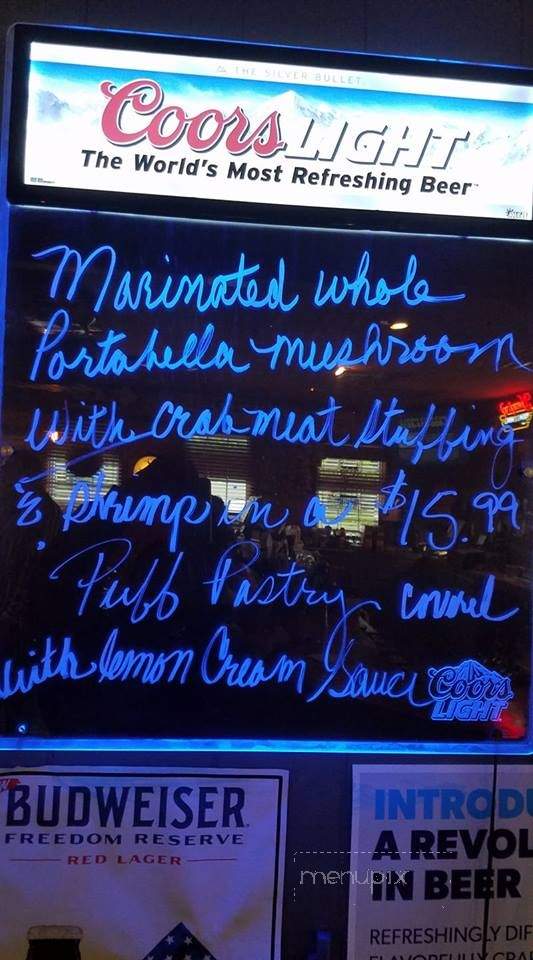 THE SILVER BULLET
Coors LIGHT
The World's Most Refreshing Beer
Marinated whole
Portabella mushroom
with Crab meat Stuffing
& shrimp in a $15.99
Puff Pastry covered
with lemon Cream Sauce
Coors
LIGHT
BUDWEISER
FREEDOM RESERVE
RED LAGER
INTRODU
A REVOL
IN BEER
REFRESHINGLY DIF
FLAVORFULLY CRAF
menupix